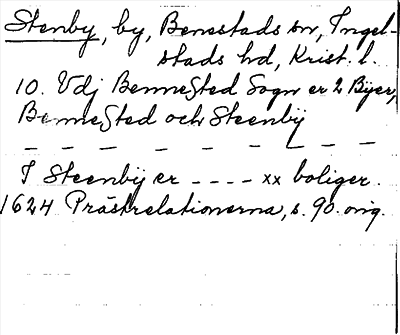 Stenby, by, Benestads sn, Ingel-
stads hd, Krist. l.
10. Vdj Bennested Sogn er 2 Byer,
Bennested och Steenbÿ
— — — — — — — — —
I Steenbÿ er - - - - xx boliger.
1624 Prästrelationerna, s. 90. orig.